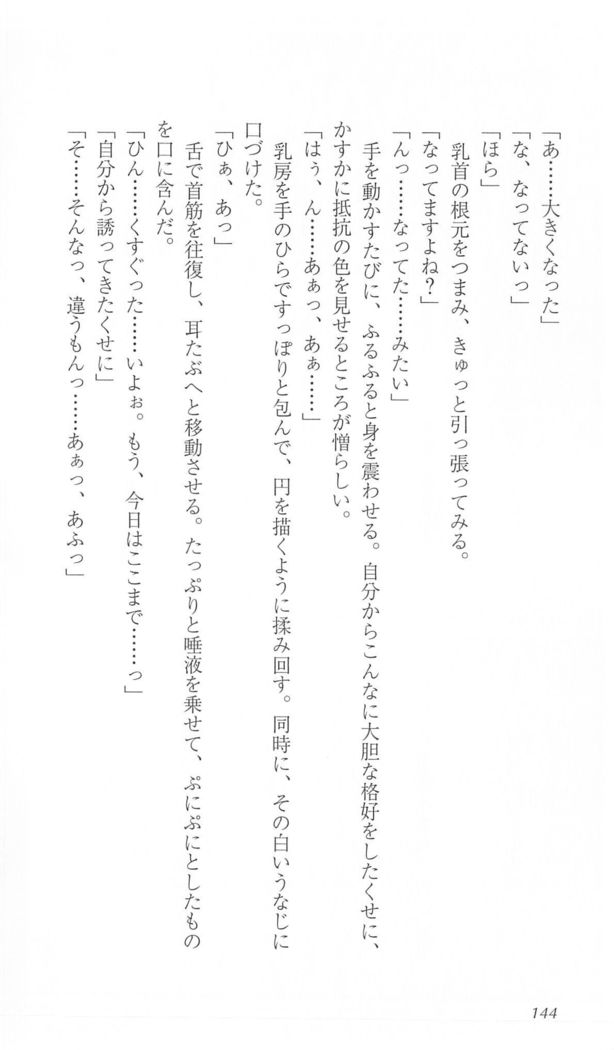 「あ……大きくなった」
「な、なってないっ」
「ほら」
　乳首の根元をつまみ、きゅっと引っ張ってみる。
「なってますよね？」
「んっ……なってた……みたい」
　手を動かすたびに、ふるふると身を震わせる。自分からこんなに大胆な格好をしたくせに、
かすかに抵抗の色を見せるところが憎らしい。
「はぅ、ん……あぁっ、あぁ……」
　乳房を手のひらですっぽりと包んで、円を描くように揉み回す。同時に、その白いうなじに
口づけた。
「ひぁ、あっ」
　舌で首筋を往復し、耳たぶへと移動させる。たっぷりと唾液を乗せて、ぷにぷにとしたもの
を口に含んだ。
「ひん……くすぐった……いよぉ。もう、今日はここまで……っ」
「自分から誘ってきたくせに」
「そ……そんなっ、違うもんっ……あぁっ、あふっ」
144